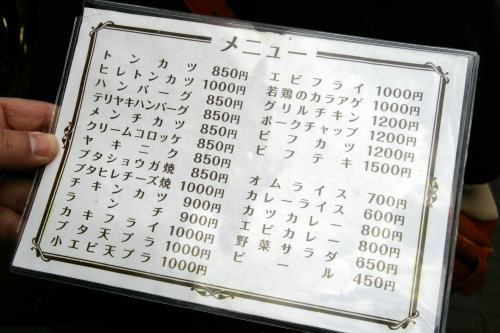 メニュー
トンカツ 850円
ヒレトンカツ 1000円
ハンバーグ 850円
テリヤキハンバーグ 850円
メンチカツ 850円
クリームコロッケ 850円
ヤキニク 850円
ブタショウガ焼 850円
ブタヒレチーズ焼 1000円
チキンカツ 900円
ランチ 900円
カキフライ 1000円
ブタ天プラ 1000円
小エビ天プラ 1000円
エビフライ 1000円
若鶏のカラアゲ 1000円
グリルチキン 1200円
ポークチャップ 1200円
ビフカツ 1200円
ビフテキ 1500円
オムライス 700円
カレーライス 600円
カツカレー 800円
エビカレー 800円
野菜サラダ 650円
ビール 450円